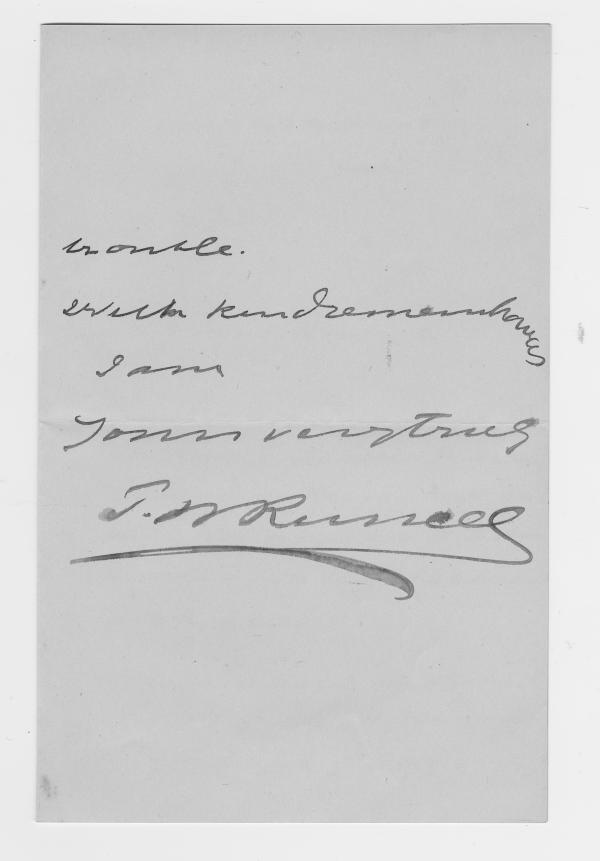 trouble.
With kind remembrances
I am
Yours very truly
T. W Russell